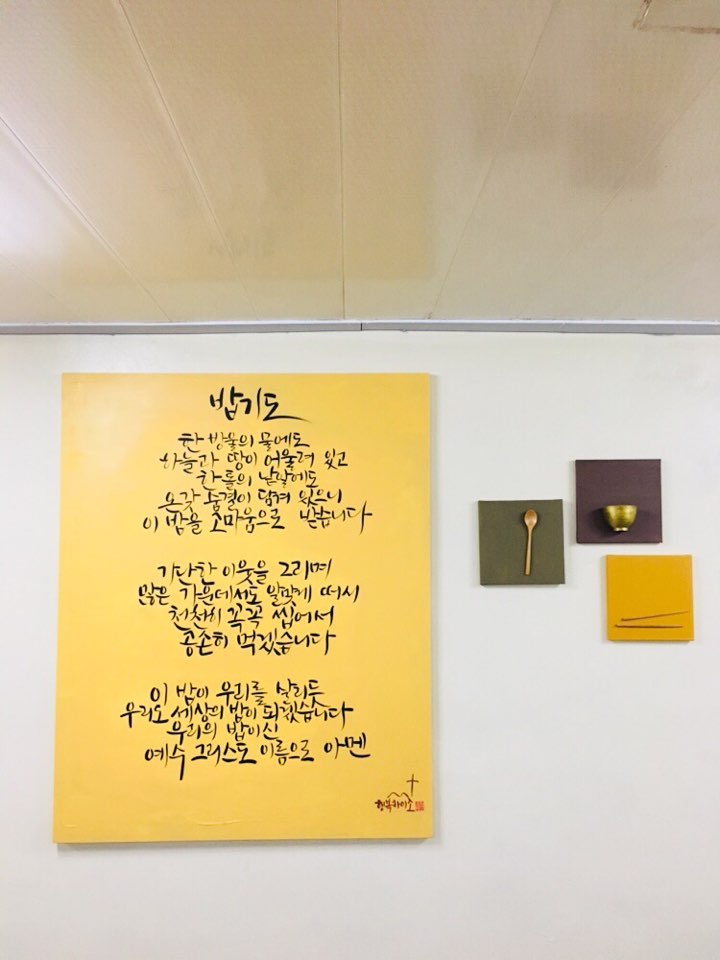 밥기도
한 방울의 물에도
하늘과 땅이 어울려 있고
한 톨의 낱알에도
온갖 숨결이 담겨 있으니
이 밥을 고마움으로 받습니다
가난한 이웃을 그리며
많은 가운데서도 알맞게 떠서
천천히 꼭꼭 씹어서
공손히 먹겠습니다
이 밥이 우리를 살리듯
우리도 세상의 밥이 되겠습니다
우리의 밥이신
예수 그리스도 이름으로 아멘
행복하이소